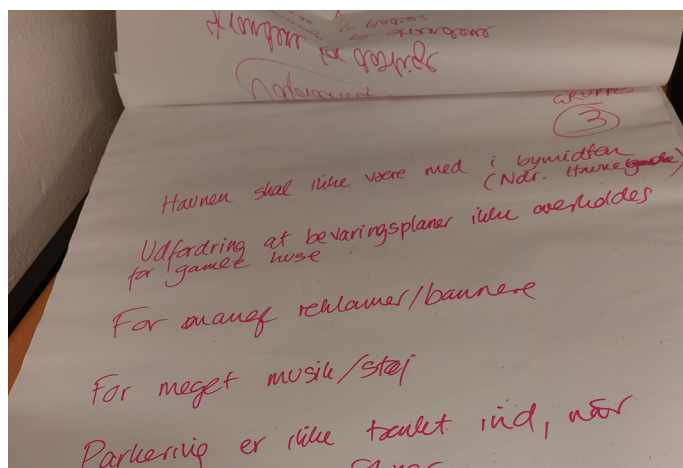 GRUPPE
3
Havnen skal ikke være med i bymidten
(Ndr. Havnegade)
Udfordring at bevaringsplaner ikke overholdes
for gamle huse
For mange reklamer/bannere
For meget musik/støj
Parkering er ikke tænkt ind, når